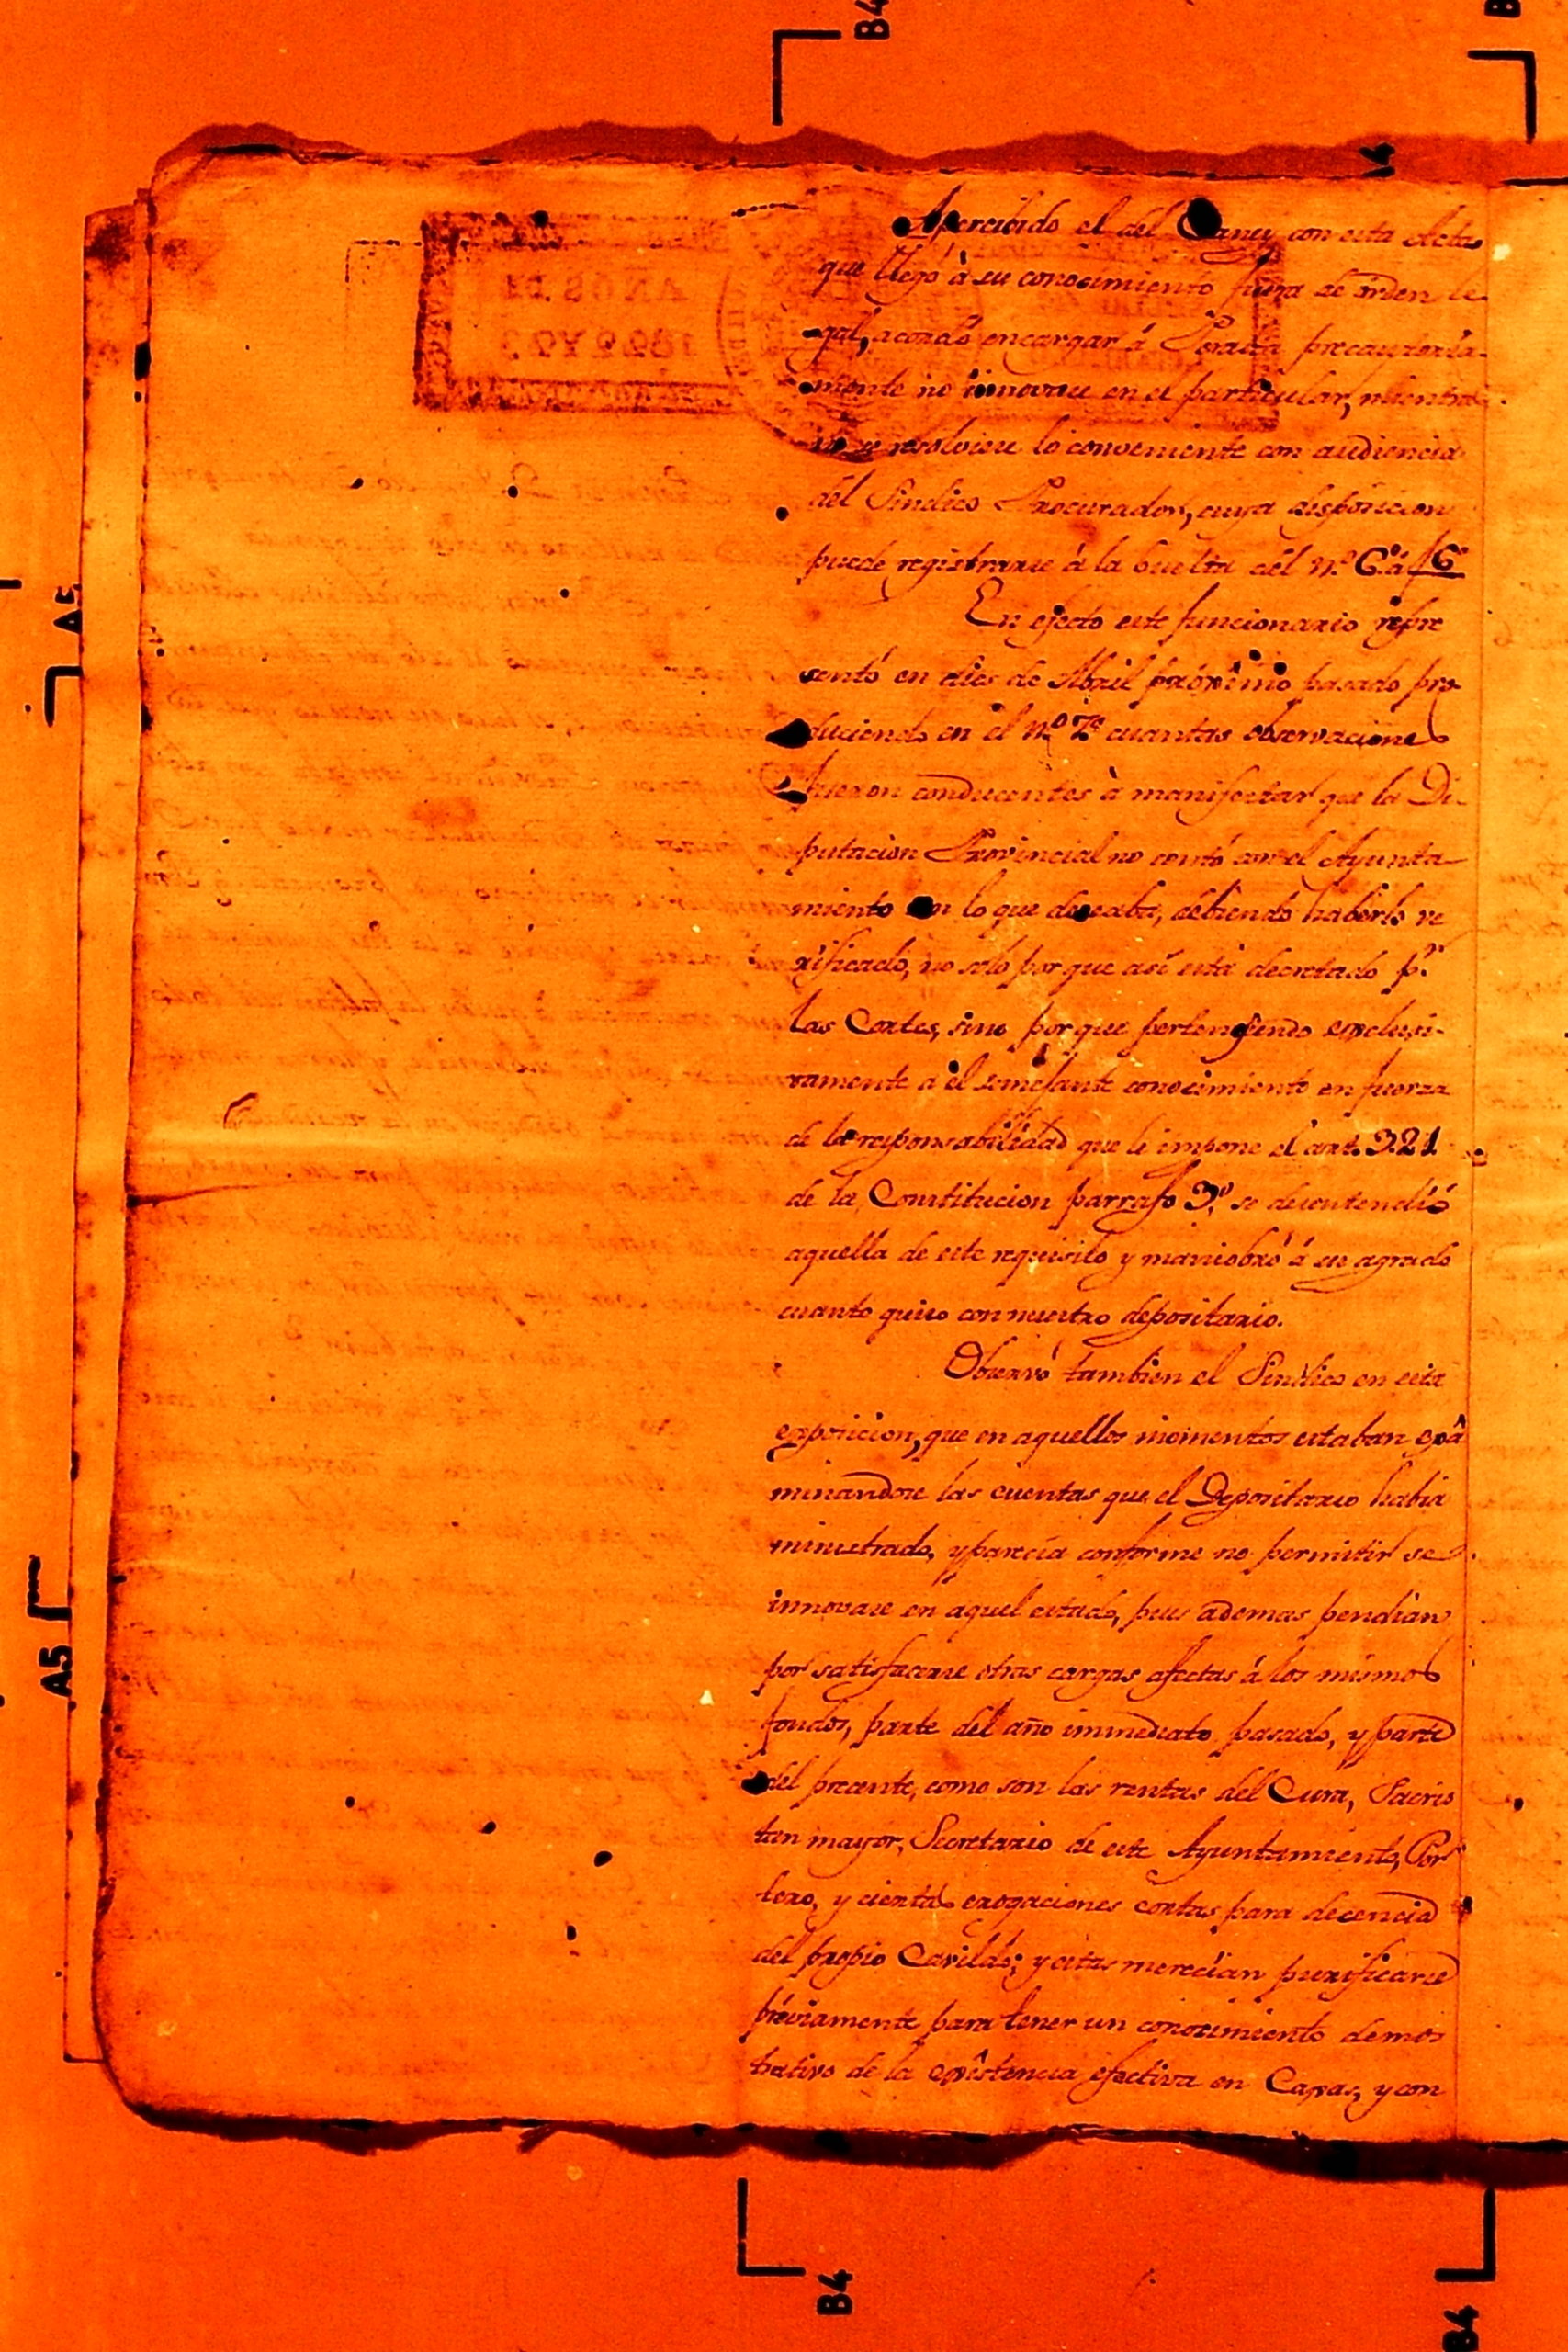 Apercibido el del Caney con esta Acta
que llegó à su conocimiento fuera de orden le-
gal, acordó encargar á Portada precautoria-
mente no innovase en el particular, mientras
no se resolviese lo conveniente con audiencia
del Sindico Procurador, cuya disposicion
puede registrarse á la buelta del n.º 6.º á f 6
En efecto este funcionario repre
sentó en dies de Abril próximo pasado pro-
duciendo en el n.º 7.º cuantas observaciones
fueron conducentes à manifestar que la Di-
putacion Provincial no contó con el Ayunta-
miento en lo que deseaba, debiendo haberlo ve
rificado, no solo por que así está decretado p.r
las Cortes, sino por que perteneciendo exclusi-
vamente a él semejante conocimiento en fuerza
de la responsabilidad que le impone el art. 321
de la Constitucion parrafo 3.º se desentendió
aquella de este requisito y maniobró á su agrado
cuanto quiso con nuestro depositario.
Observó tambien el Sindico en esta
exposicion, que en aquellos momentos estaban exâ
minandose las cuentas que el Depositario habia
ministrado, y parecia conforme no permitir se
innovase en aquel estado, pues ademas pendian
por satisfacerse otras cargas afectas á los mismos
fondos, parte del año inmediato pasado, y parte
del presente, como son las rentas del Cura, Sacris
tan mayor, Secretario de este Ayuntamiento, Por
tero, y ciertas erogaciones cortas para decencia
del propio Cavildo; y estas merecian purificarse
préviamente para tener un conocimiento demos
trativo de la exîstencia efectiva en Caxas, y con
AÑOS DE
1822 Y 23
B4
A5
A5
B4
B4